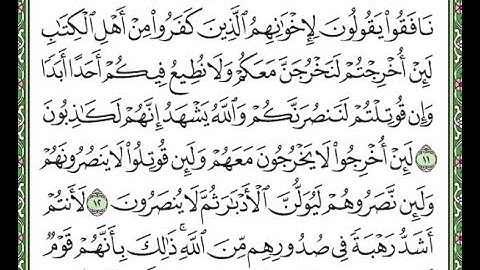 نَافَقُوا۟ يَقُولُونَ لِإِخْوَٰنِهِمُ ٱلَّذِينَ كَفَرُوا۟ مِنْ أَهْلِ ٱلْكِتَٰبِ
لَئِنْ أُخْرِجْتُمْ لَنَخْرُجَنَّ مَعَكُمْ وَلَا نُطِيعُ فِيكُمْ أَحَدًا أَبَدًا
وَإِن قُوتِلْتُمْ لَنَنصُرَنَّكُمْ وَٱللَّهُ يَشْهَدُ إِنَّهُمْ لَكَٰذِبُونَ
١١ لَئِنْ أُخْرِجُوا۟ لَا يَخْرُجُونَ مَعَهُمْ وَلَئِن قُوتِلُوا۟ لَا يَنصُرُونَهُمْ
وَلَئِن نَّصَرُوهُمْ لَيُوَلُّنَّ ٱلْأَدْبَٰرَ ثُمَّ لَا يُنصَرُونَ ١٢ لَأَنتُمْ
أَشَدُّ رَهْبَةً فِى صُدُورِهِم مِّنَ ٱللَّهِ ۚ ذَٰلِكَ بِأَنَّهُمْ قَوْمٌ